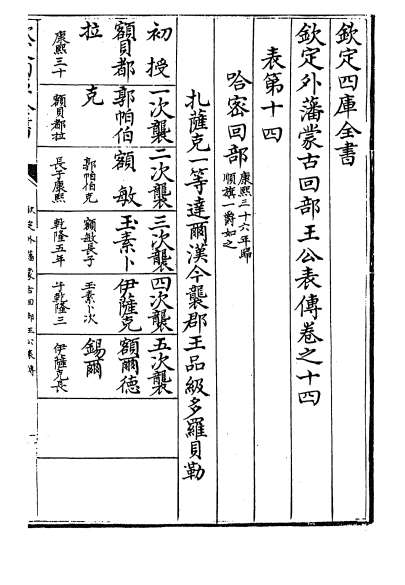 欽定四庫全書
欽定外藩蒙古回部王公表傳卷之十四
表第十四
哈密回部 康熙三十六年歸
順旗一爵如之
扎薩克一等達爾漢今襲郡王品級多羅貝勒
初授 一次襲 二次襲 三次襲 四次襲 五次襲
額貝都 郭帕伯 額敏 玉素卜 伊薩克 額爾德
拉 克 郭帕伯克 額敏長子 玉素卜次 錫爾
康熙三十 額貝都拉 長子康熙 乾隆五年 子乾隆三 伊薩克長